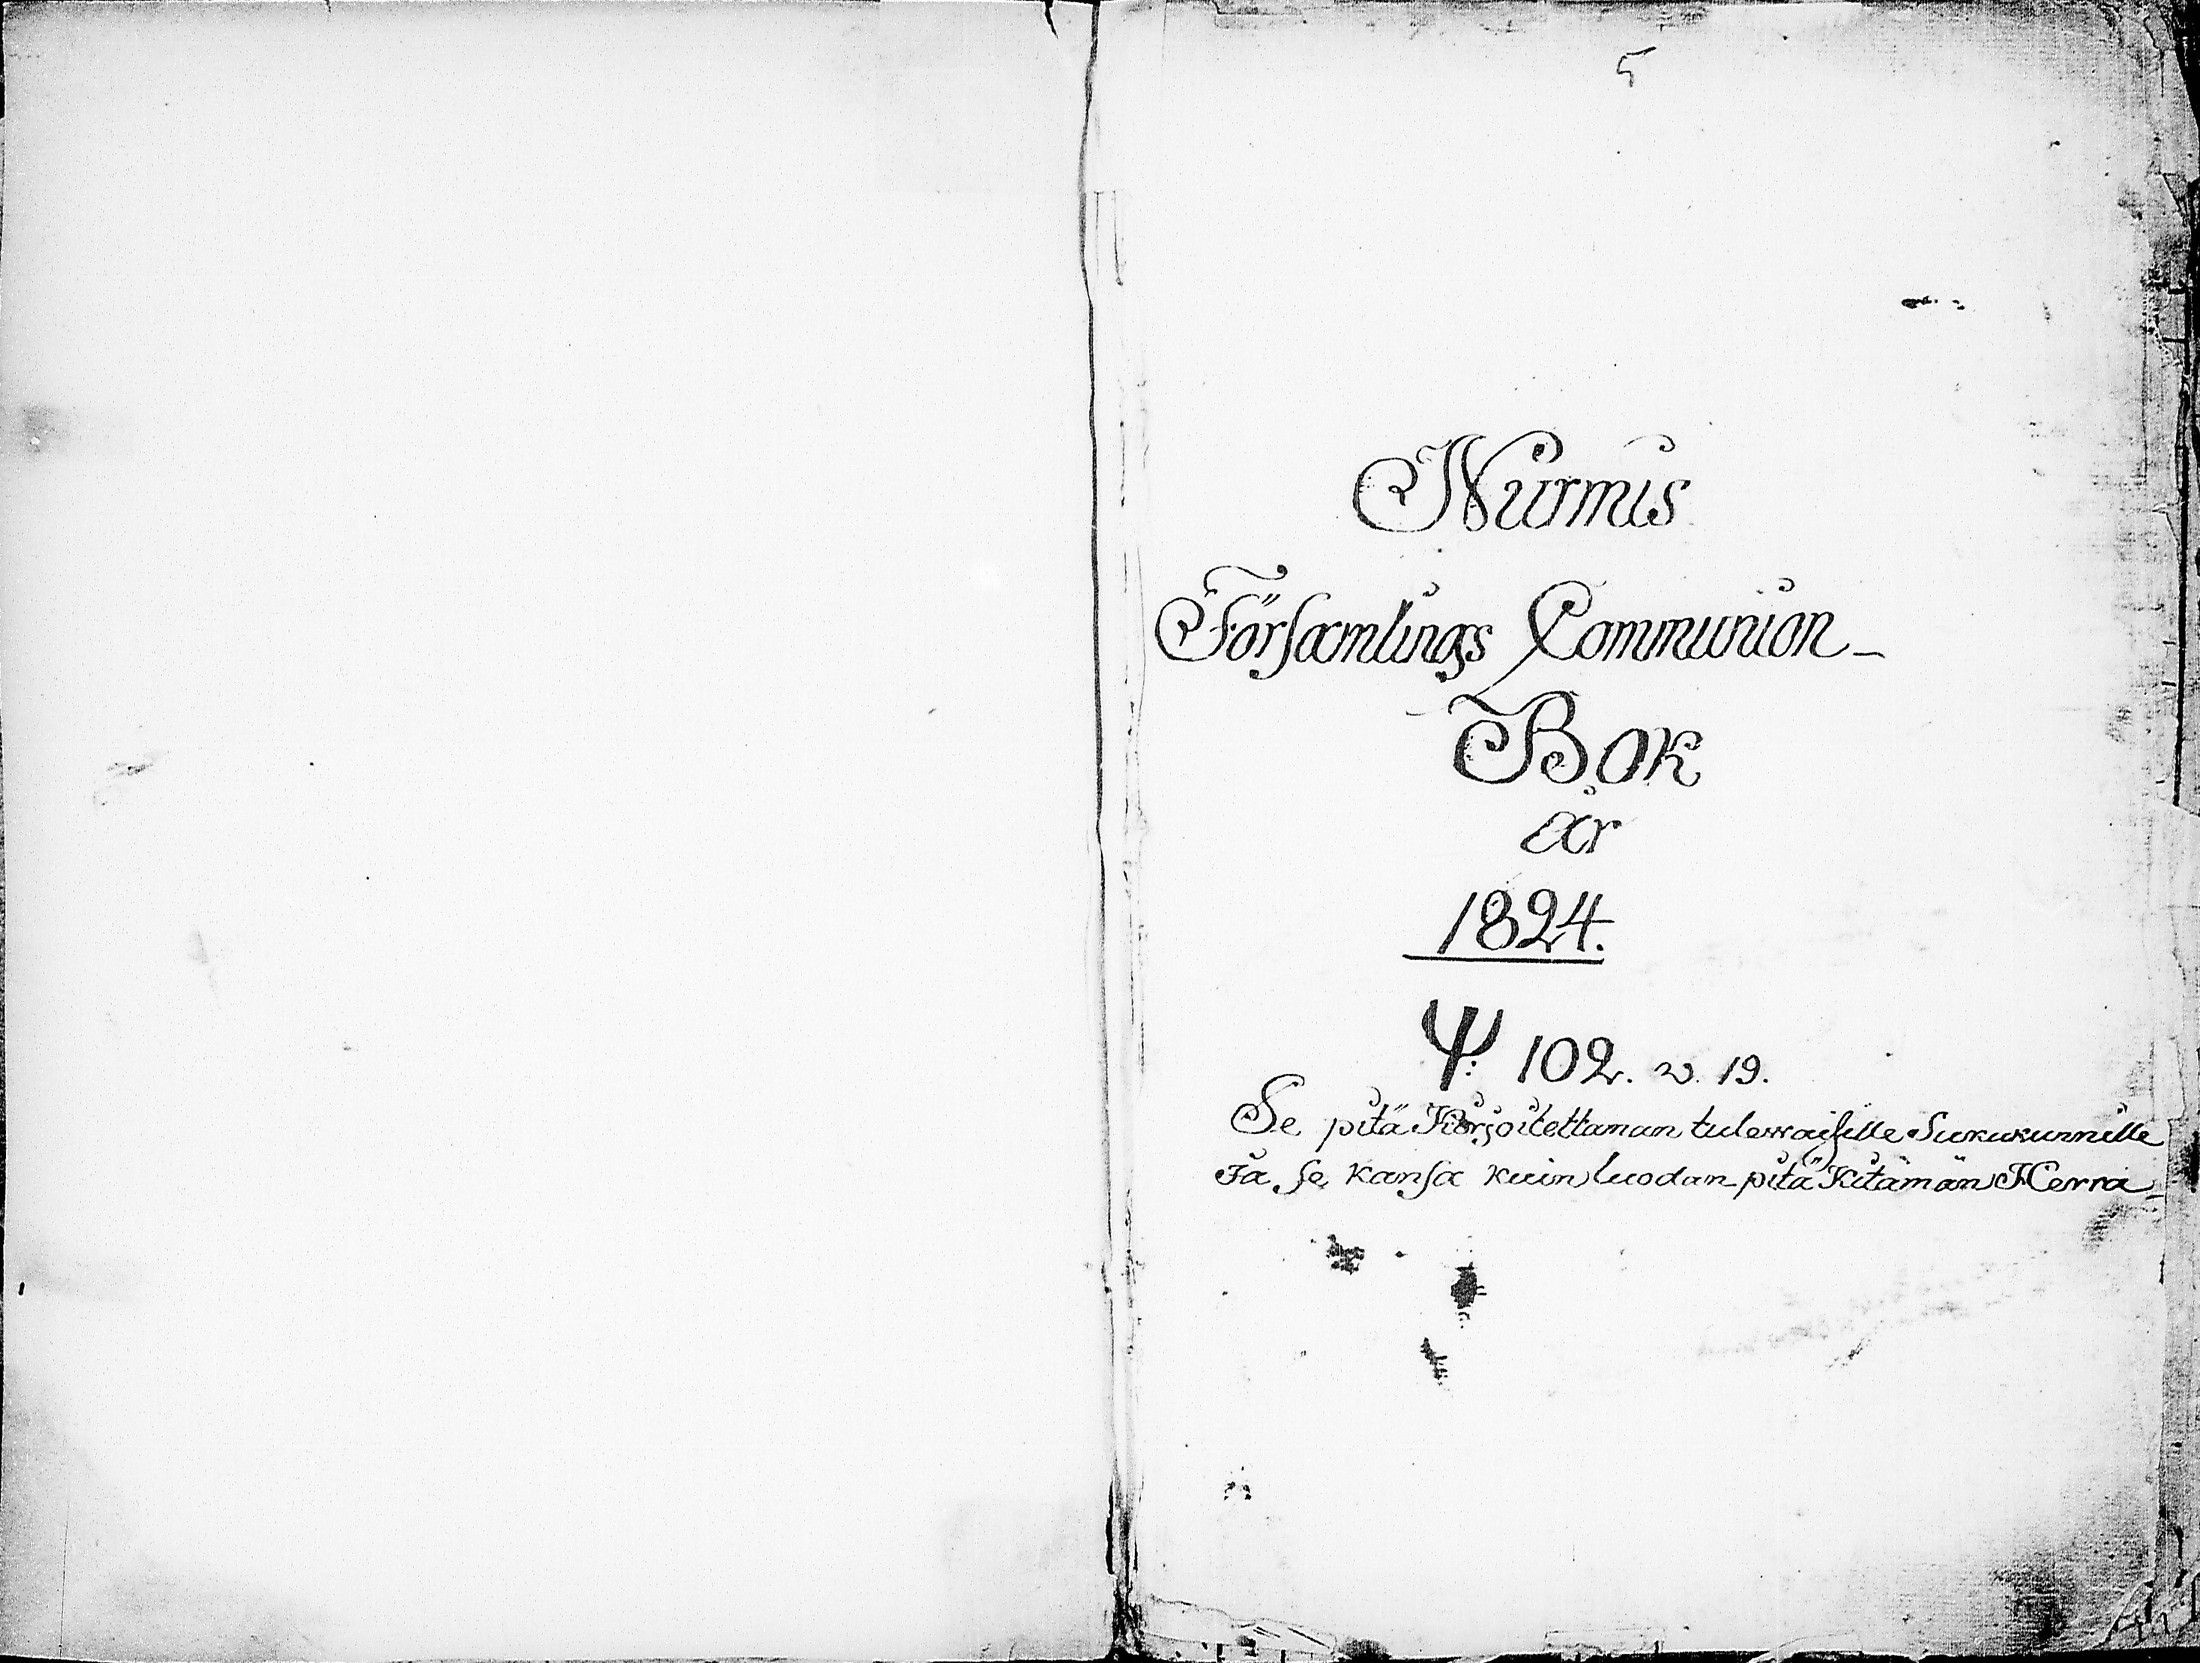 5
Nurmis
Församlings Communion-
Bok
år
1824.
Ψ: 102. v. 19.
Se pitä Kirjoitettaman tulewaisille Sukukunnille
Ja se kansa kuin luodan pitä Kitämän Herra